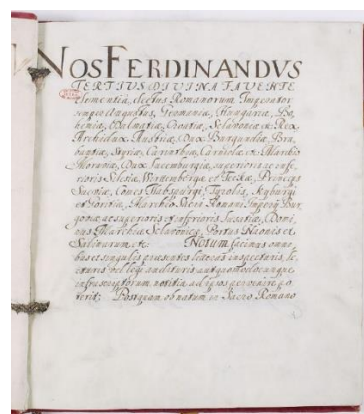 NOS FERDINANDVS
TERTIVS DIVINA FAVENTE
clementia, Electus Romanorum Imperator
semper Augustus, Germaniæ, Hungariæ, Bo-
hemiæ, Dalmatiæ, Croatiæ, Sclavoniæ & Rex,
Archidux Austriæ, Dux Burgundiæ, Bra-
bantiæ, Styriæ, Carinthiæ, Carniolæ &, Marchio
Moraviæ, Dux Luxemburgiæ, superioris et infe-
rioris Silesiæ, Wirttembergæ et Teckæ, Princeps
Sueviæ, Comes Habspurgi, Tyrolis, Kyburgi
et Goritiæ, Marchio Sacri Romani Imperij Bur-
goviæ ac superioris et inferioris Lusatiæ, Domi-
nus Marchiæ Sclavonicæ, Portus Naonis et
Salinarum, etc. Notum facimus omni-
bus et singulis præsentes literas inspecturis, le-
cturis vel legi audituris aut quomodocunque
infrascriptorum notitia ad ipsos pervenire po-
terit: Postquam ob natum in Sacro Romano